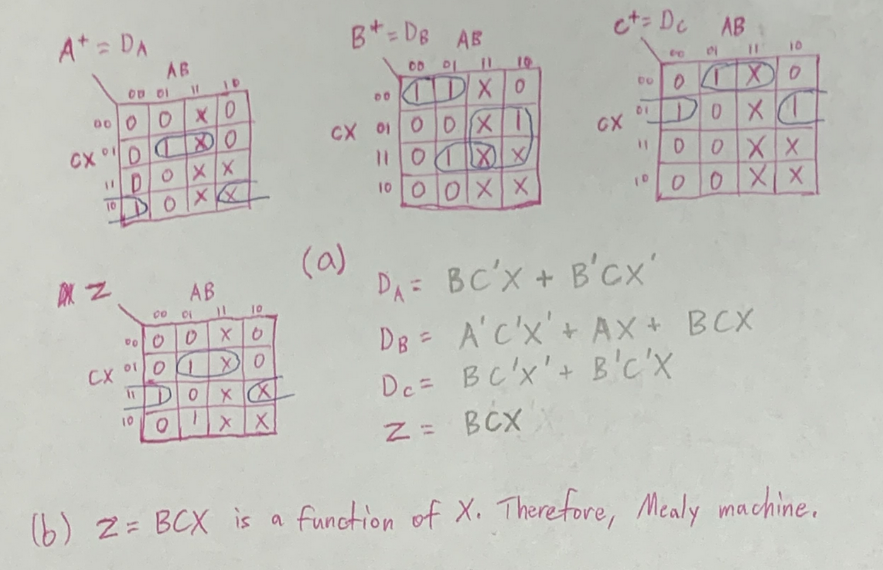 A+ = DA
AB
00 01 11 10
CX
00 0 0 X 0
01 0 1 X 0
11 0 0 X X
10 1 0 X X
B+ = DB AB
00 01 11 10
CX
00 1 1 X 0
01 0 0 X 1
11 0 1 X X
10 0 0 X X
C+ = DC AB
00 01 11 10
CX
00 0 1 X 0
01 1 0 X 1
11 0 0 X X
10 0 0 X X
Z
AB
00 01 11 10
CX
00 0 0 X 0
01 0 1 X 0
11 1 0 X X
10 0 1 X X
(a)
DA = BC'X + B'CX'
DB = A'C'X' + AX + BCX
DC = BC'X' + B'C'X
Z = BCX
(b) Z = BCX is a function of X. Therefore, Mealy machine.